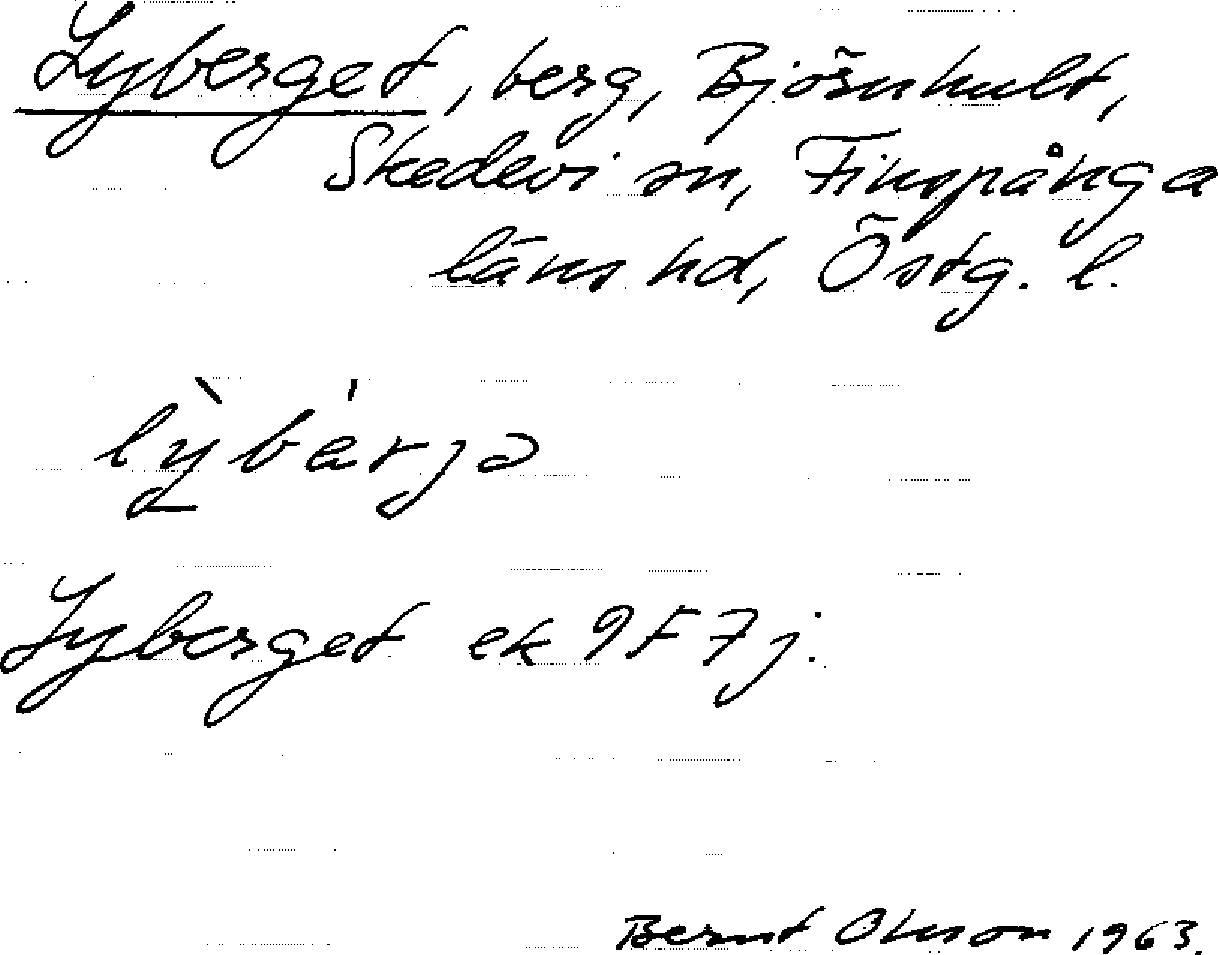 Lyberget, berg, Björnhult,
Skedevi sn, Finspånga
läns hd, Östg. l.
lỳbárjə
Lyberget ek 9F7j.
Bernt Olson 1963.